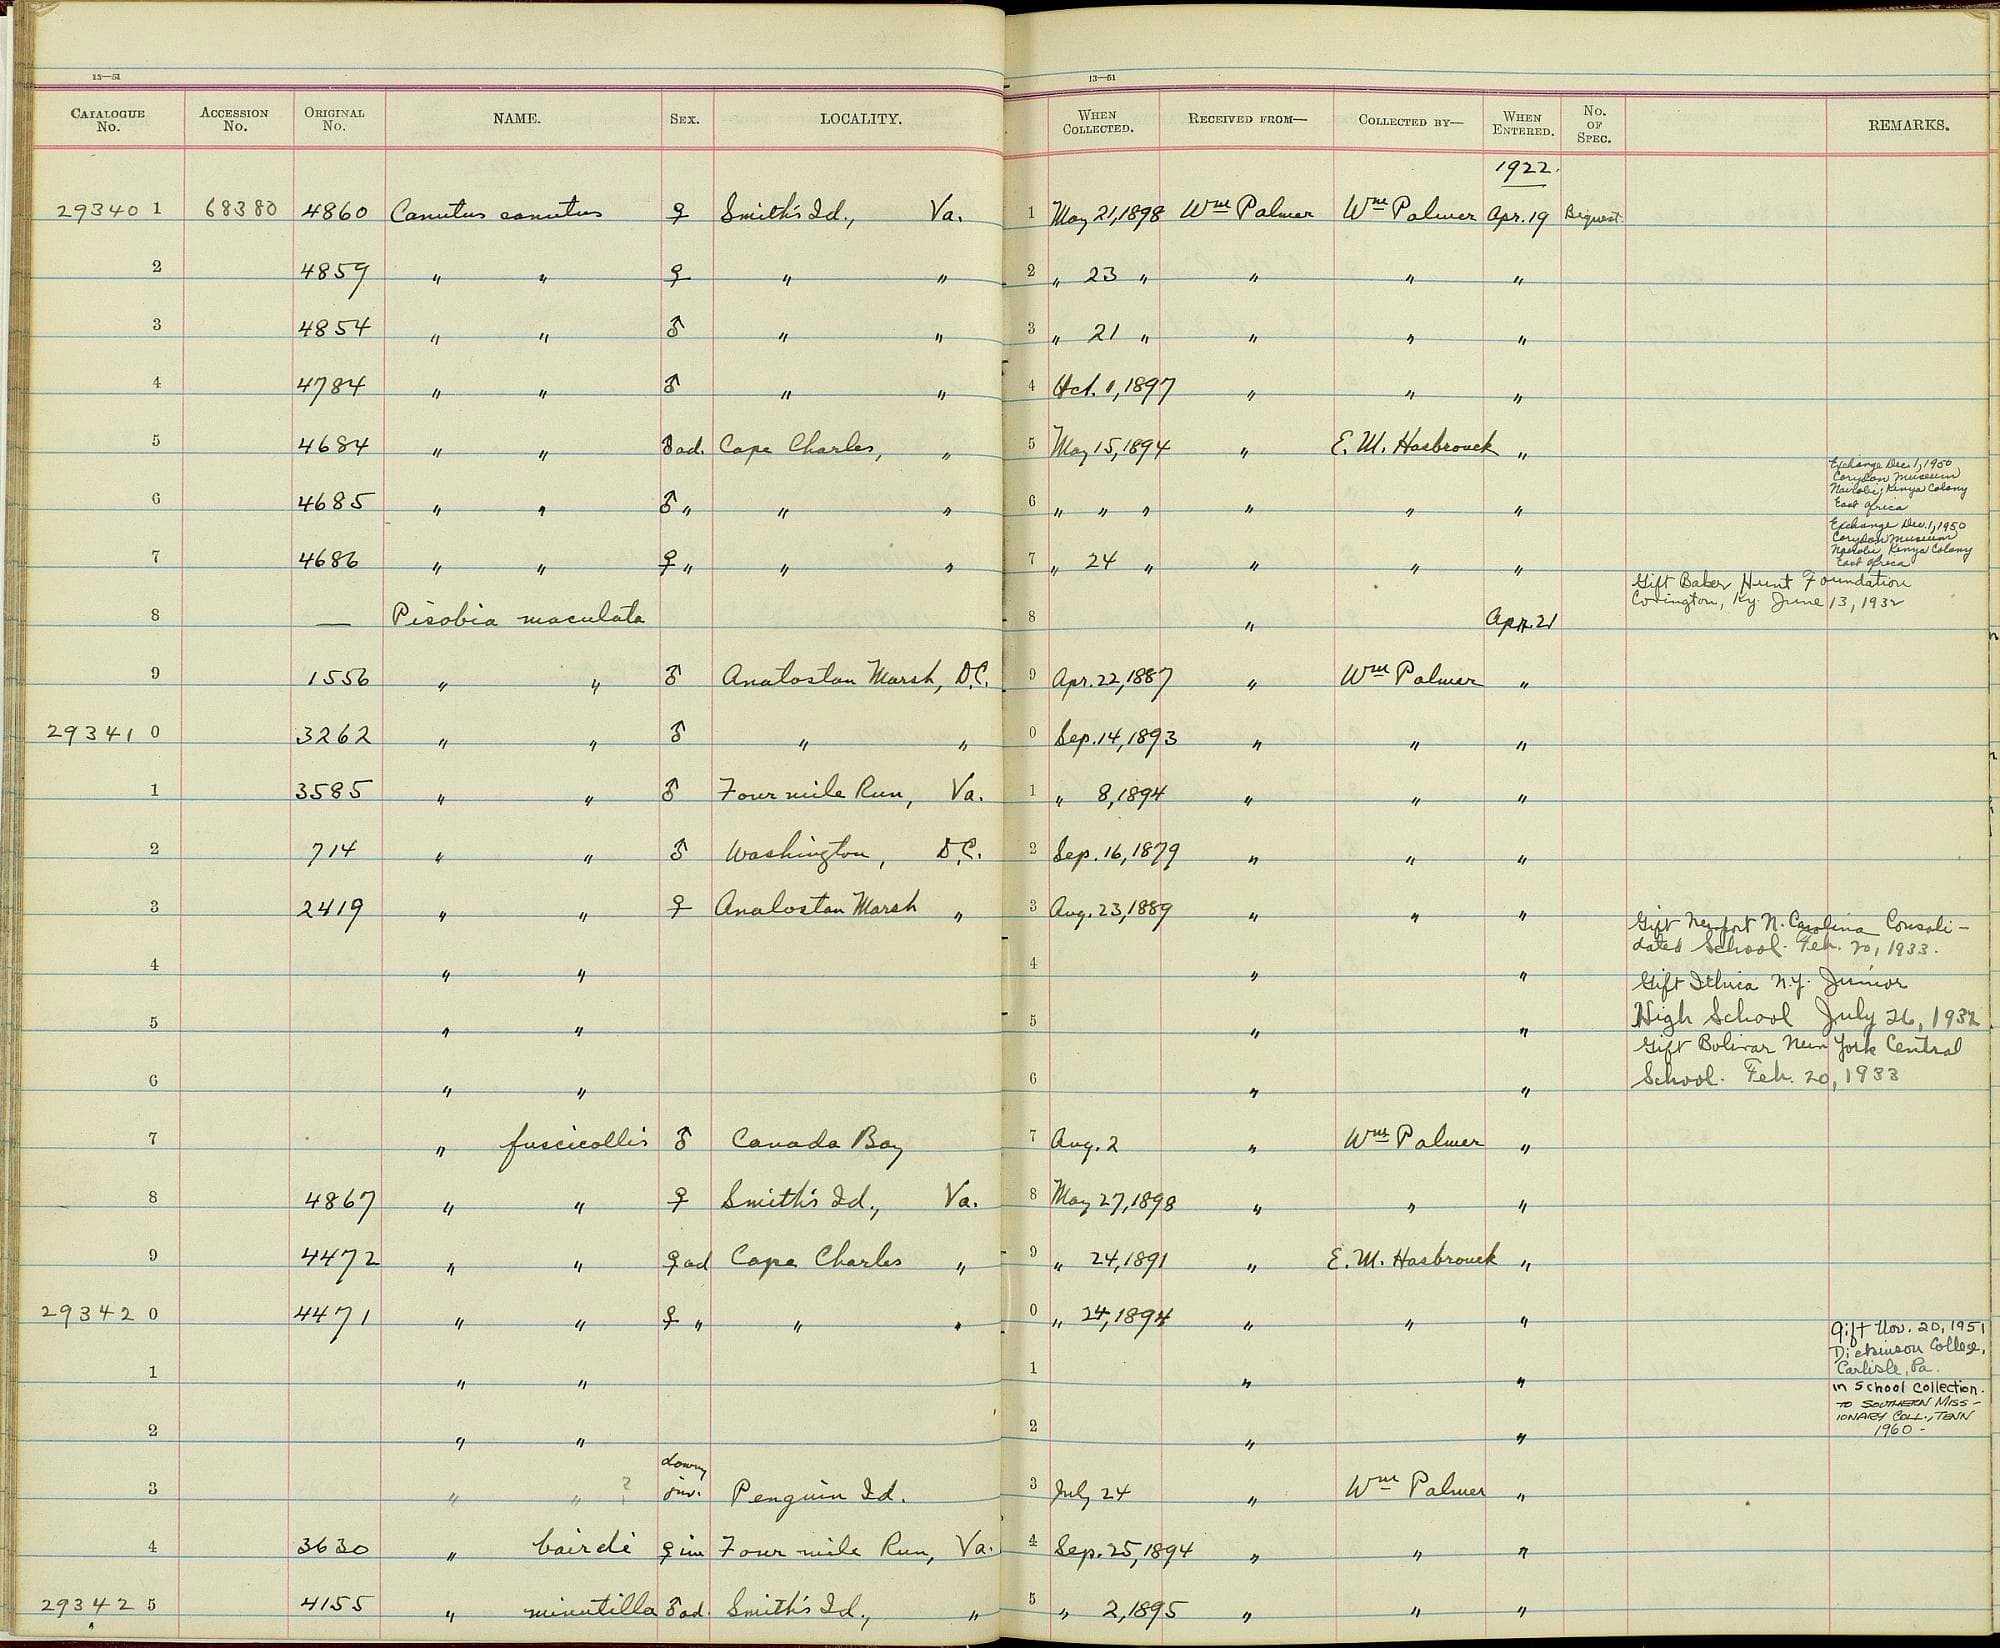 13—51
13—51
CATALOGUE No. ACCESSION No. ORIGINAL No. NAME. SEX. LOCALITY. WHEN COLLECTED. RECEIVED FROM— COLLECTED BY— WHEN ENTERED. No. OF SPEC. REMARKS.
1922.
29340 1 68380 4860 Canutus canutus ♀ Smith's Id., Va. 1 May 21, 1898 Wm Palmer Wm Palmer Apr. 19 Bequest.
2 4859 " " ♀ " " 2 " 23 " " " "
3 4854 " " ♂ " " 3 " 21 " " " "
4 4784 " " ♂ " " 4 Oct. 1, 1897 " " "
5 4684 " " ♂ad. Cape Charles, " 5 May 15, 1894 " E. M. Hasbrouck "
6 4685 " " ♂ " " " 6 " " " " " " Exchange Dec. 1, 1950
Corydon Museum
Nairobi, Kenya Colony
East Africa
7 4686 " " ♀ " " " 7 " 24 " " " " Exchange Dec. 1, 1950
Corydon Museum
Nairobi, Kenya Colony
East Africa
8 — Pisobia maculata 8 " Apr. 21 Gift Baker Hunt Foundation
Covington, Ky. June 13, 1932
9 1556 " " ♂ Analostan Marsh, D.C. 9 Apr. 22, 1887 " Wm Palmer "
29341 0 3262 " " ♂ " " 0 Sep. 14, 1893 " " "
1 3585 " " ♂ Four mile Run, Va. 1 " 8, 1894 " " "
2 714 " " ♂ Washington, D.C. 2 Sep. 16, 1879 " " "
3 2419 " " ♀ Analostan Marsh " 3 Aug. 23, 1889 " " "
4 " " 4 " " Gift Newport N. Carolina Consoli-
dated School. Feb. 20, 1933.
5 " " 5 " " Gift Ithica N.Y. Junior
High School July 26, 1932
6 " " 6 " " Gift Bolivar New York Central
School. Feb. 20, 1933
7 " fuscicollis ♂ Canada Bay 7 Aug. 2 " Wm Palmer "
8 4867 " " ♀ Smith's Id., Va. 8 May 27, 1898 " " "
9 4472 " " ♀ad Cape Charles " 9 " 24, 1891 " E. M. Hasbrouck "
29342 0 4471 " " ♀ " " " 0 " 24, 1894 " " "
1 " " 1 " " Gift Nov. 20, 1951
Dickinson College,
Carlisle, Pa.
2 " " 2 " " in School Collection.
TO SOUTHERN MISS-
IONARY COLL., TENN
1960-
3 " " ? downy juv. Penguin Id. 3 July 24 " Wm Palmer "
4 3630 " bairdi ♀im Four mile Run, Va. 4 Sep. 25, 1894 " " "
29342 5 4155 " minutilla ♂ad. Smith's Id., " 5 " 2, 1895 " " "